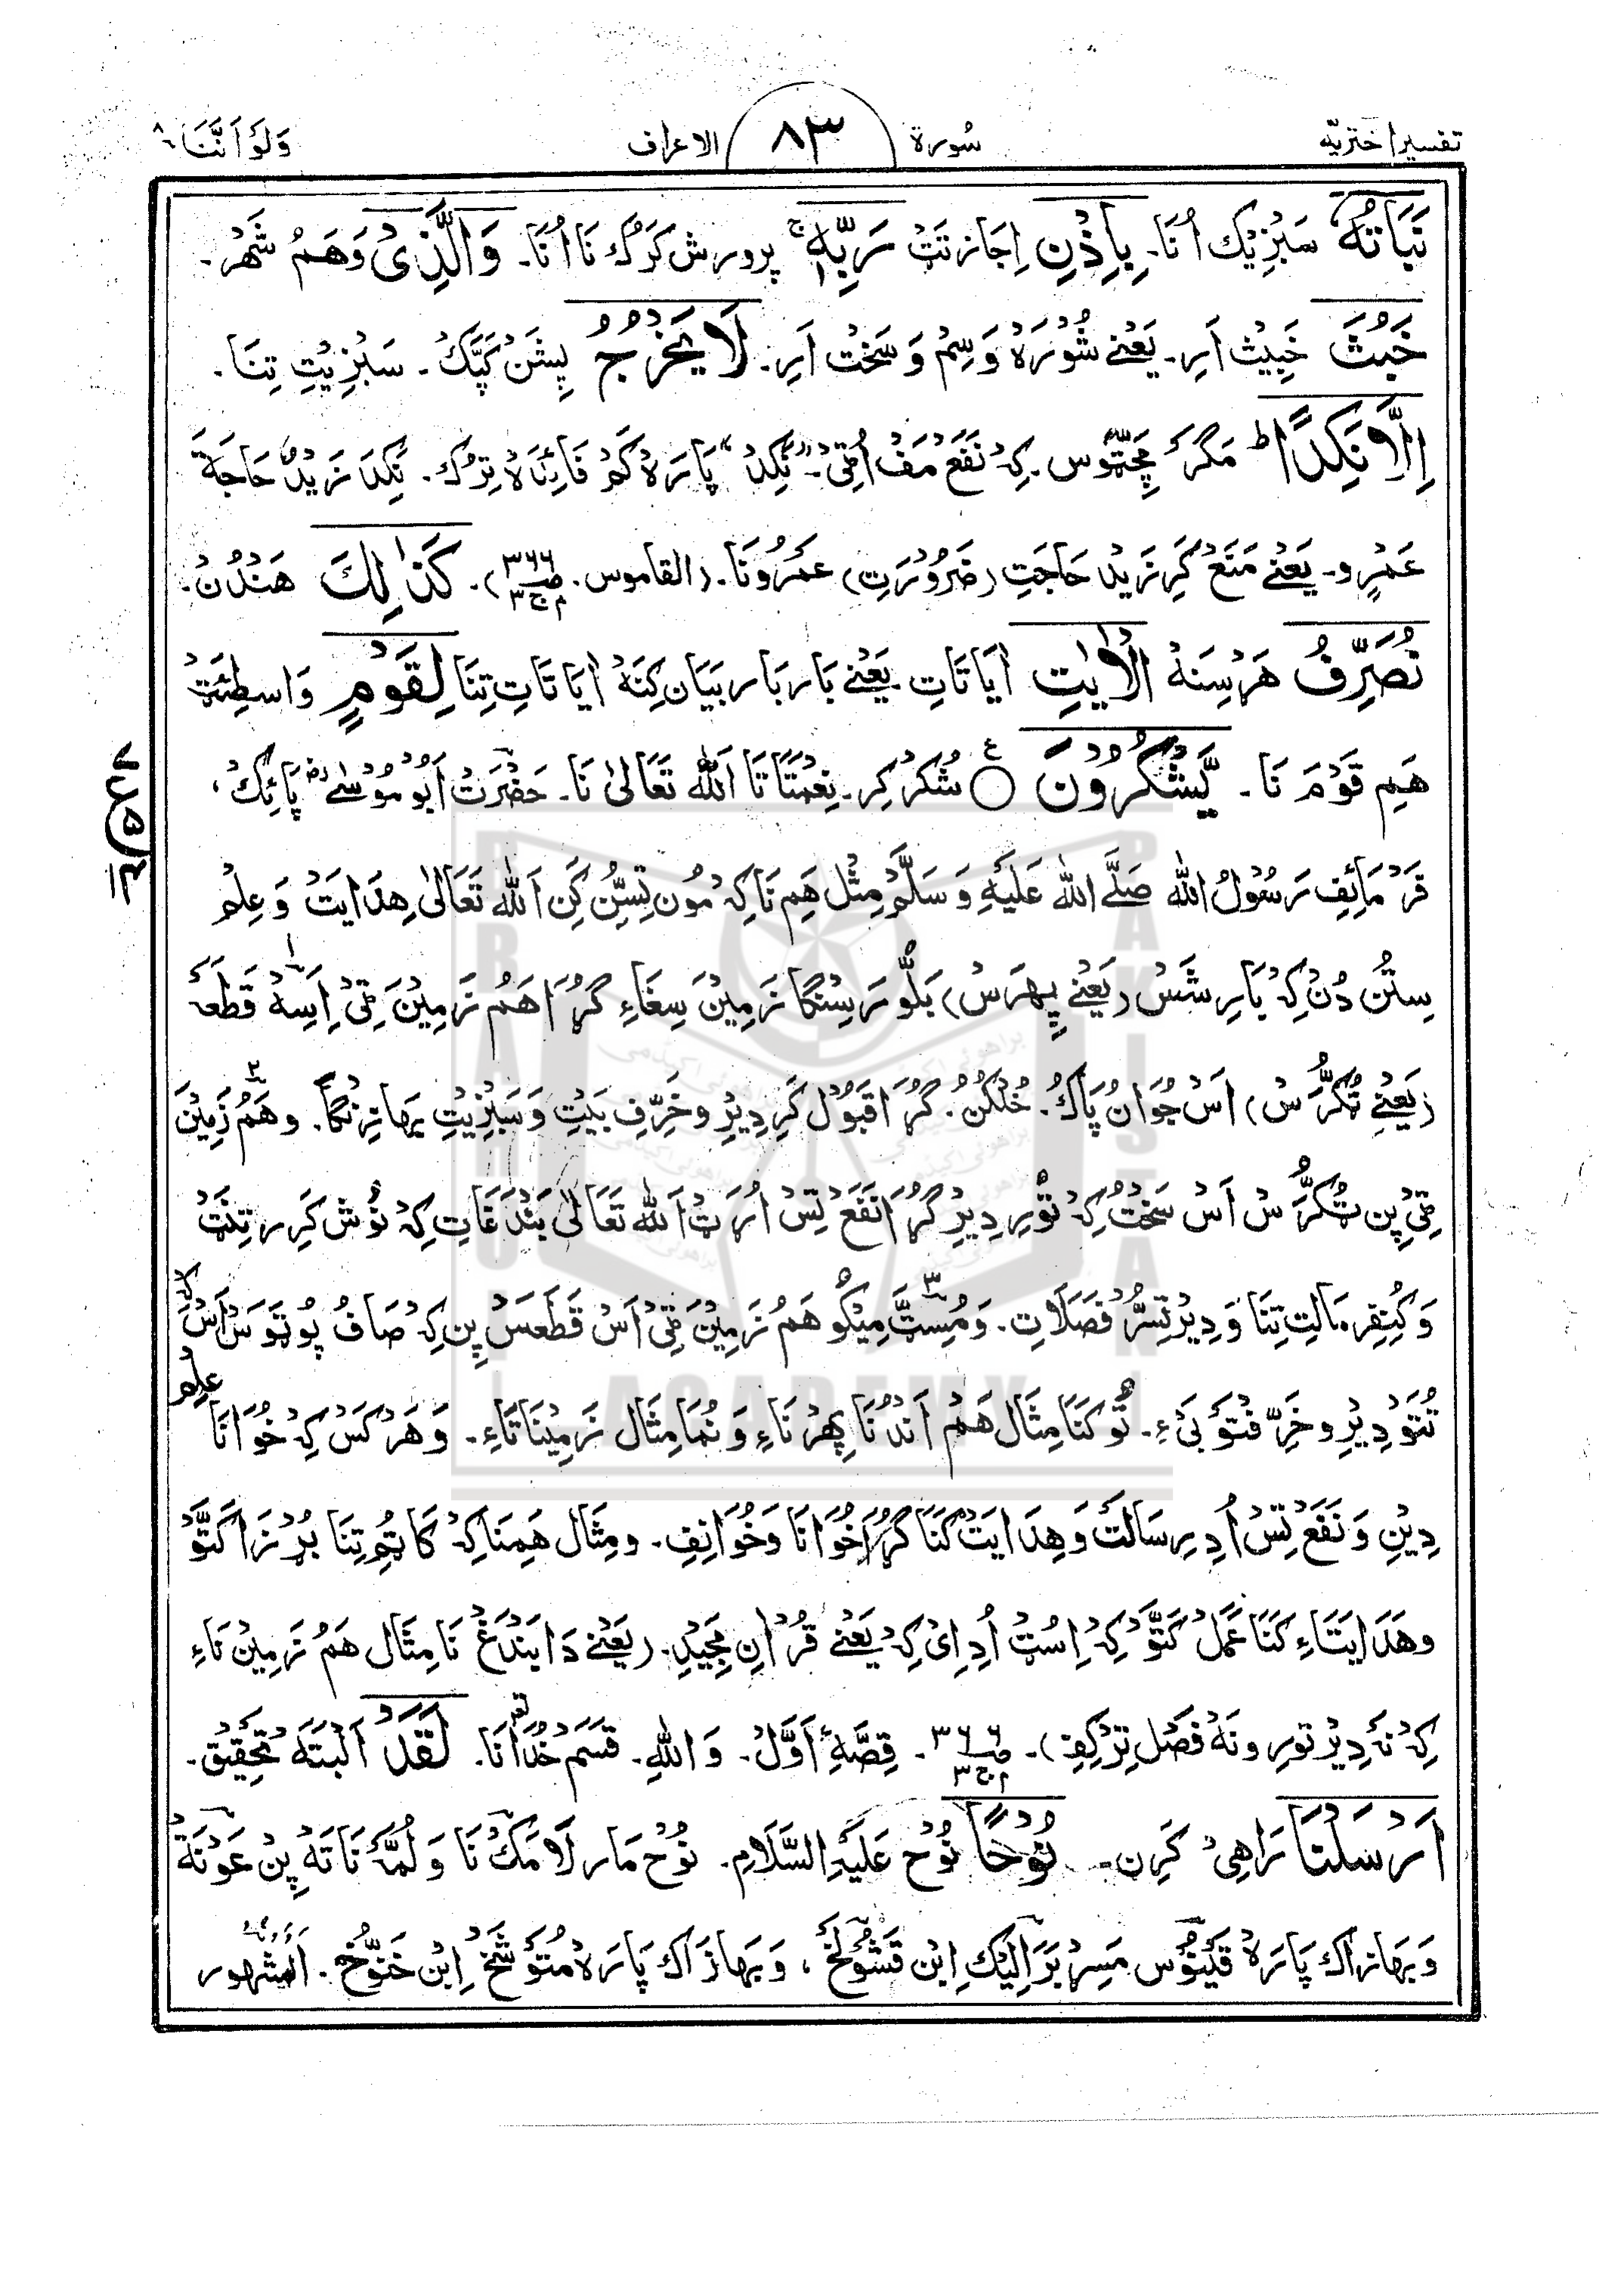 تفسیر اختریّه
سُورة ٨٣ الاعراف
وَلَوْ اَنَّنَا ٨
نَبَاتُهٗ سَبْزِیْک اُنَا۔ بِاِذْنِ اِجَازتَتْ رَبِّهٖ ج پرورش کَرُک نَا اُنَا۔ وَالَّذِیْ وَهَمُ شَهْر۔
خَبُثَ خَبِیْث اَرِ۔ یَعْنِے شُوْرَهْ وَسِمْ وَسَخْت اَرِ۔ لَا یَخْرُجُ پِشَنْ کَپَّکْ۔ سَبْزِیْتِ تِنَا۔
اِلَّا نَکِدًا ط مَگَرْ مَچِّتُّوس۔ کِهْ نَفَعْ مَفْ اُٹِیْ۔ "نَکِدْ" پَارَهْ کَمْ فَائِدَهْ تِرُک۔ نَکِدَ زَیْدٌ حَاجَةَ
عَمْرٍو۔ یَعْنِے مَنَعْ کَرِ زَیْد حَاجَتِ (ضَرُوْرَتِ) عَمْرُونَا۔ (القاموس۔ صـ٣٦٦ م ج ٣)۔ کَذٰلِكَ هَنْدُنْ۔
نُصَرِّفُ هَرْسِنَهْ الْاٰیٰتِ اٰیَاتَاتِ۔ یَعْنِے بَار بَار بَیَان کِنَهْ اٰیَاتَاتِ تِنَا لِقَوْمٍ وَاسِطَئَٹْ
هَمِ قَوْمَ نَا۔ یَّشْکُرُوْنَ ○ ع شُکْر کِر۔ نِعْمَتَاتَا اَللّٰه تَعَالیٰ نَا۔ حَضْرَتْ اَبُوْ مُوْسٰےؓ پَائِکْ،
فَرْمَائِفِ رَسُوْلُ اللّٰه صَلَّے اللّٰه عَلَیْهِ وَسَلَّمْ مِثْل هَمِ نَا کِهْ مُوْن تِسُّنْ کَنِ اَللّٰه تَعَالیٰ هِدَایَتْ وَعِلْم
سِتَنْ دُنْ کِهْ بَارِ شَسْ (یَعْنِے پِهَرَسْ) بَلُّو رَسِنْگَا زَمِیْنْ سِغَاءِ گُرَا هَمُ زَمِیْنَ ٹِیْ اَسِهْ قَطْعَهْ
(یَعْنِے ٹُکُّرْ سْ) اَسْ جُوَانُ پَاکُ۔ خُلْکُنْ۔ گُرَا قَبُوْل کَرِ دِیْرِ وخَرِّفِ بَیِتِ وَسَبْزِیْتِ بَهَازِنْگَا۔ وهَمُ زَمِیْنَ
ٹِیْ پِن ٹُکُّرْ سْ اَسْ سَخْتْ کِهْ تَوْرِ دِیْرِ گُرَا نَفَعْ تِسْ اُرَٹْ اَللّٰه تَعَالیٰ بَنْدَغَاتِ کِهْ نُوْش کَرِر تِنَٹْ
وَکُنِفِر مَالِتِ تِنَا وَدِیْر تِسُّرْ فَصَلَاتِ۔ وَمُسِٹِّ مِیْکُو هَمُ زَمِیْنَ ٹِیْ اَسْ قَطْعَسْ پِن کِهْ صَافُ پُوْتُوَسْ اَسْ
تَتَوْ دِیْرِ وخَرِّ فَتَوْ بَیِ۔ تُوْ کَنَا مِثَال هَمُ اَنْدُنَا پِهْرنَاءِ وَنُمَا مِثَال زَمِیْنَاتَاءِ۔ وَهَرْ کَسْ کِهْ خُوَانَا عِلْم
دِیْنِ وَنَفَعْ تِسْ اُدِ رِسَالَتْ وَهِدَایَتْ کَنَا گُرَا خُوَانَا وَخُوَانِفِ۔ ومِثَال هَمِنَا کِهْ کَاٹُمِ تِنَا بُرْزَا کَتَوْ
وهَدَایَتَاءِ کَنَا عَمَلْ کَتَوْ کِهْ اِسْتْ اُدِ اِیْ کِهْ یَعْنِے قُرْاٰنِ مَجِیْدِ۔ (یَعْنِے دَا بَنْدَغْ نَا مِثَال هَمُ زَمِیْن نَاءِ
کِهْ نَهْ دِیْر تورِ ونَهْ فَصْل تِرْکِفِ)۔ صـ٣٦٦ م ج ٣۔ قِصَّهٔ اَوَّلْ۔ وَاللّٰهِ۔ قَسَم خُدَانَا۔ لَقَدْ اَلْبَتَّهْ تَحْقِیْق۔
اَرْسَلْنَا رَاهِیْ کَرِن۔ نُوْحًا نُوْح عَلَیْهِ السَّلَام۔ نُوْح مَار لَامَکْ نَا وَلُمَّهْ نَاتَهْ پِنْ عَوْنَهْ
وَبَهَازاک پَارَهْ قَیْنُوْس مَسِرْ بَرَالِیْک اِبْن قَشُوْلَخْ، وَبَهَازاک پَارَهْ مُتَوَشَّخْ اِبْن خَنُّوْخْ۔ اَلْمَشْهُور
BRAHUI ACADEMY PAKISTAN